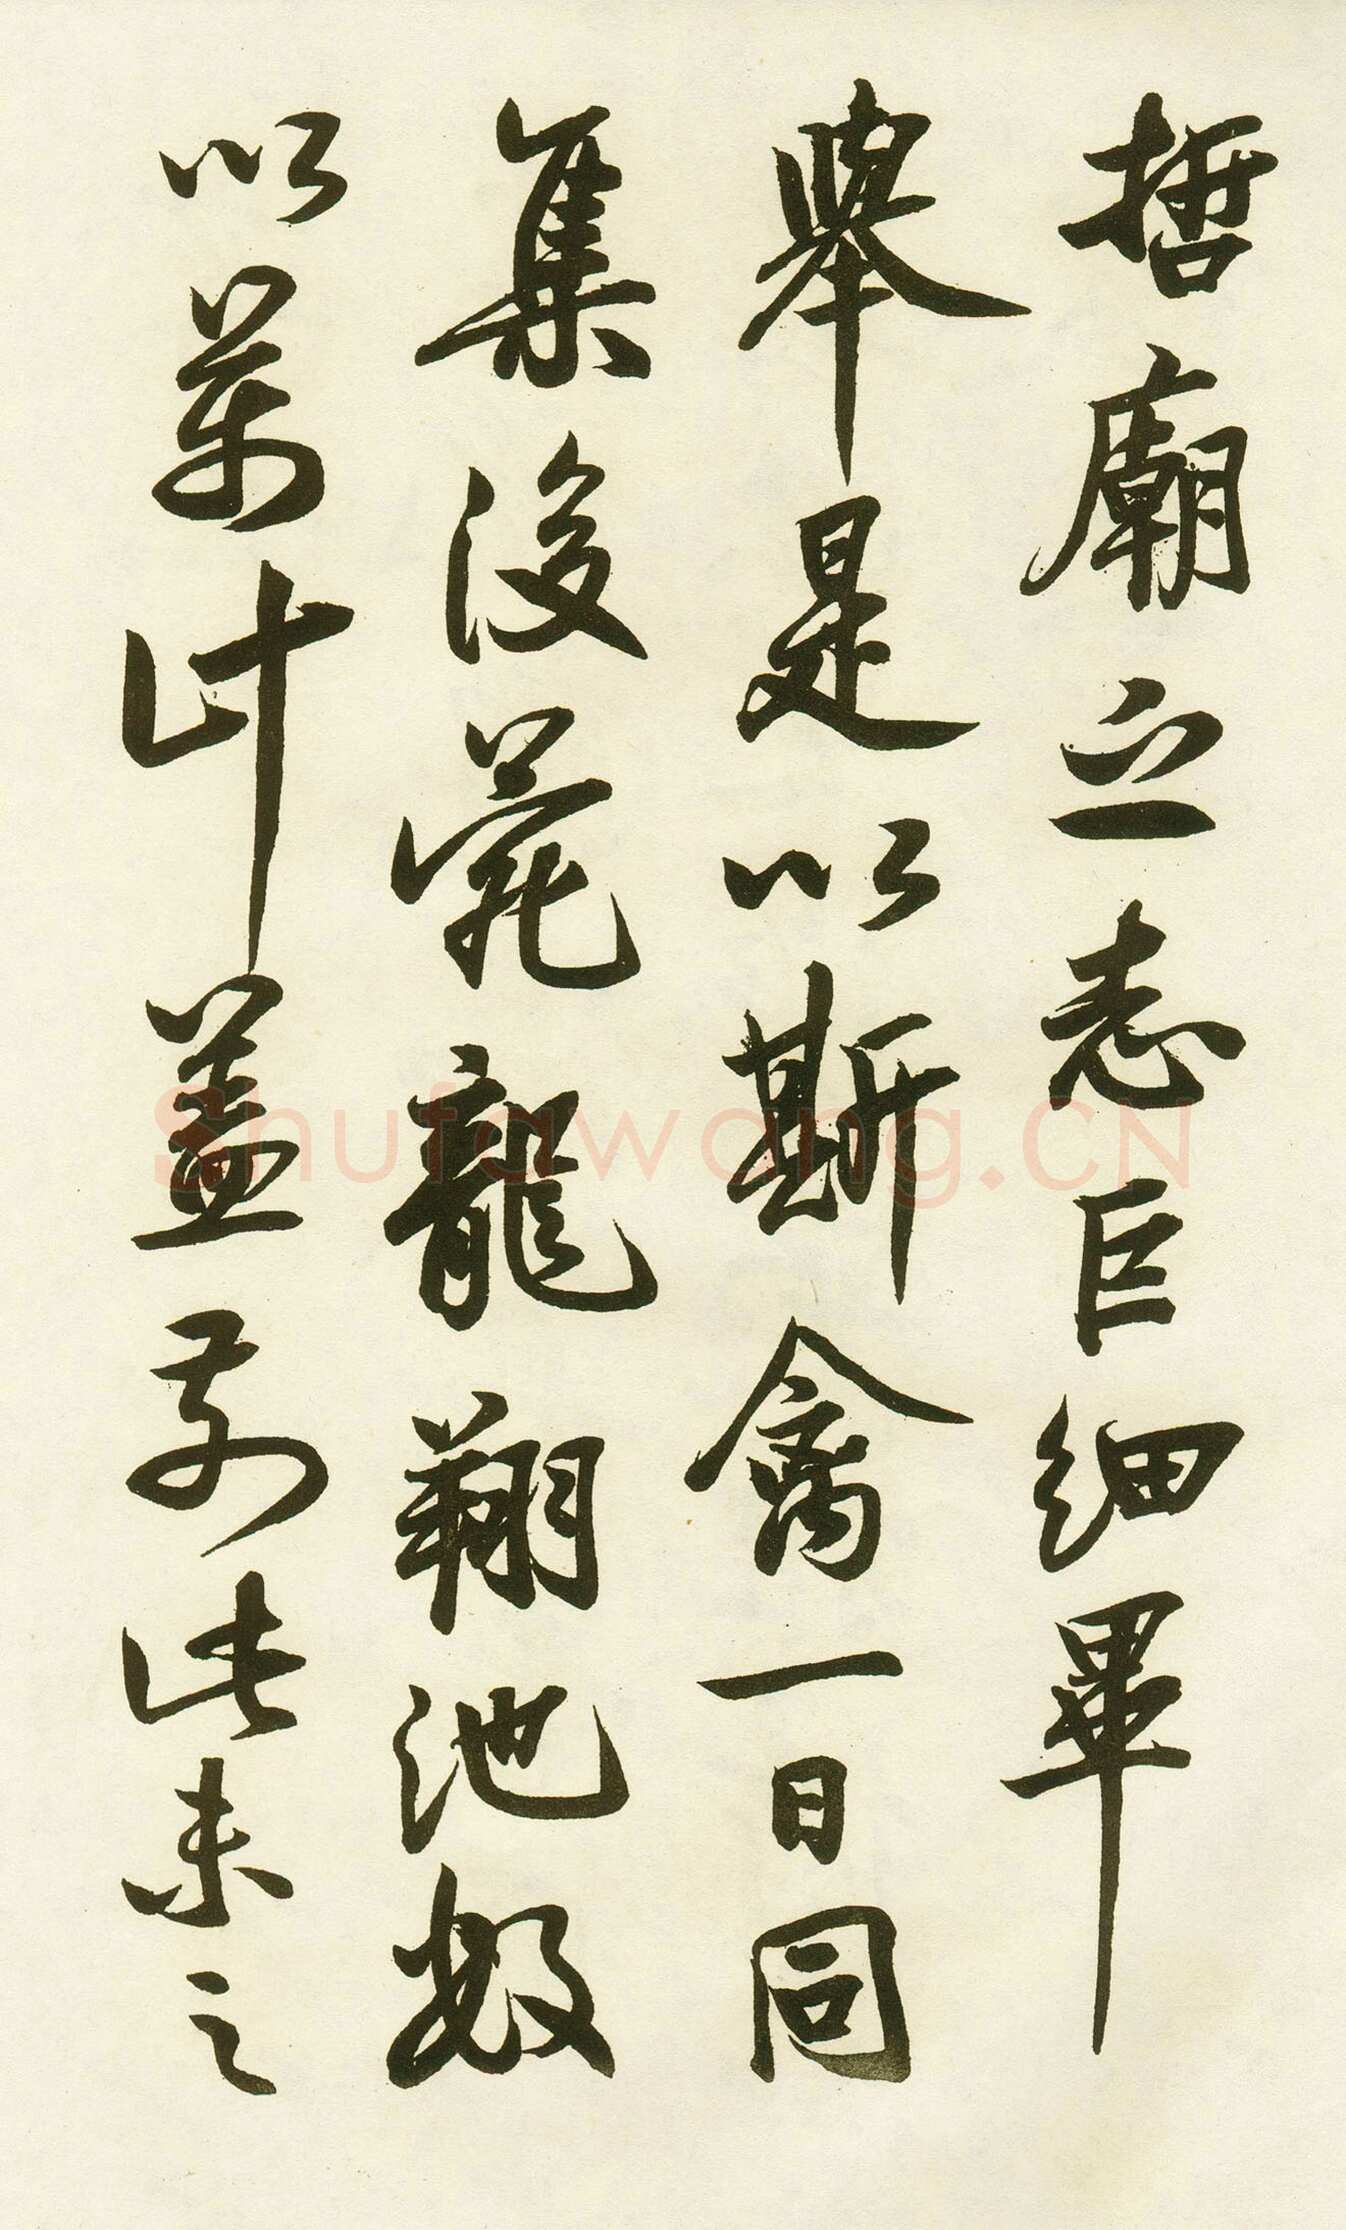 哲廟之志巨細畢
舉是以斯禽一日同
集後苑龍翔池數
以萬計蓋前此未之
Shufawang.CN